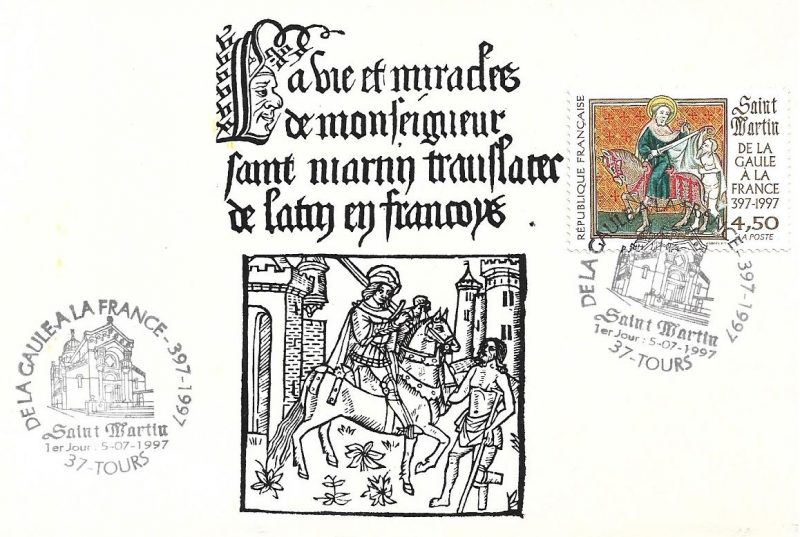 La vie et miracles
de monseigueur
saint martin translatee
de latin en francoys.
RÉPUBLIQUE FRANÇAISE
Saint
Martin
DE LA
GAULE
À LA
FRANCE
397-1997
4,50
LA POSTE
DE LA GAULE A LA FRANCE - 397-1997
Saint Martin
1er Jour : 5-07-1997
37-TOURS
DE LA GAULE A LA FRANCE - 397-1997
Saint Martin
1er Jour : 5-07-1997
37-TOURS